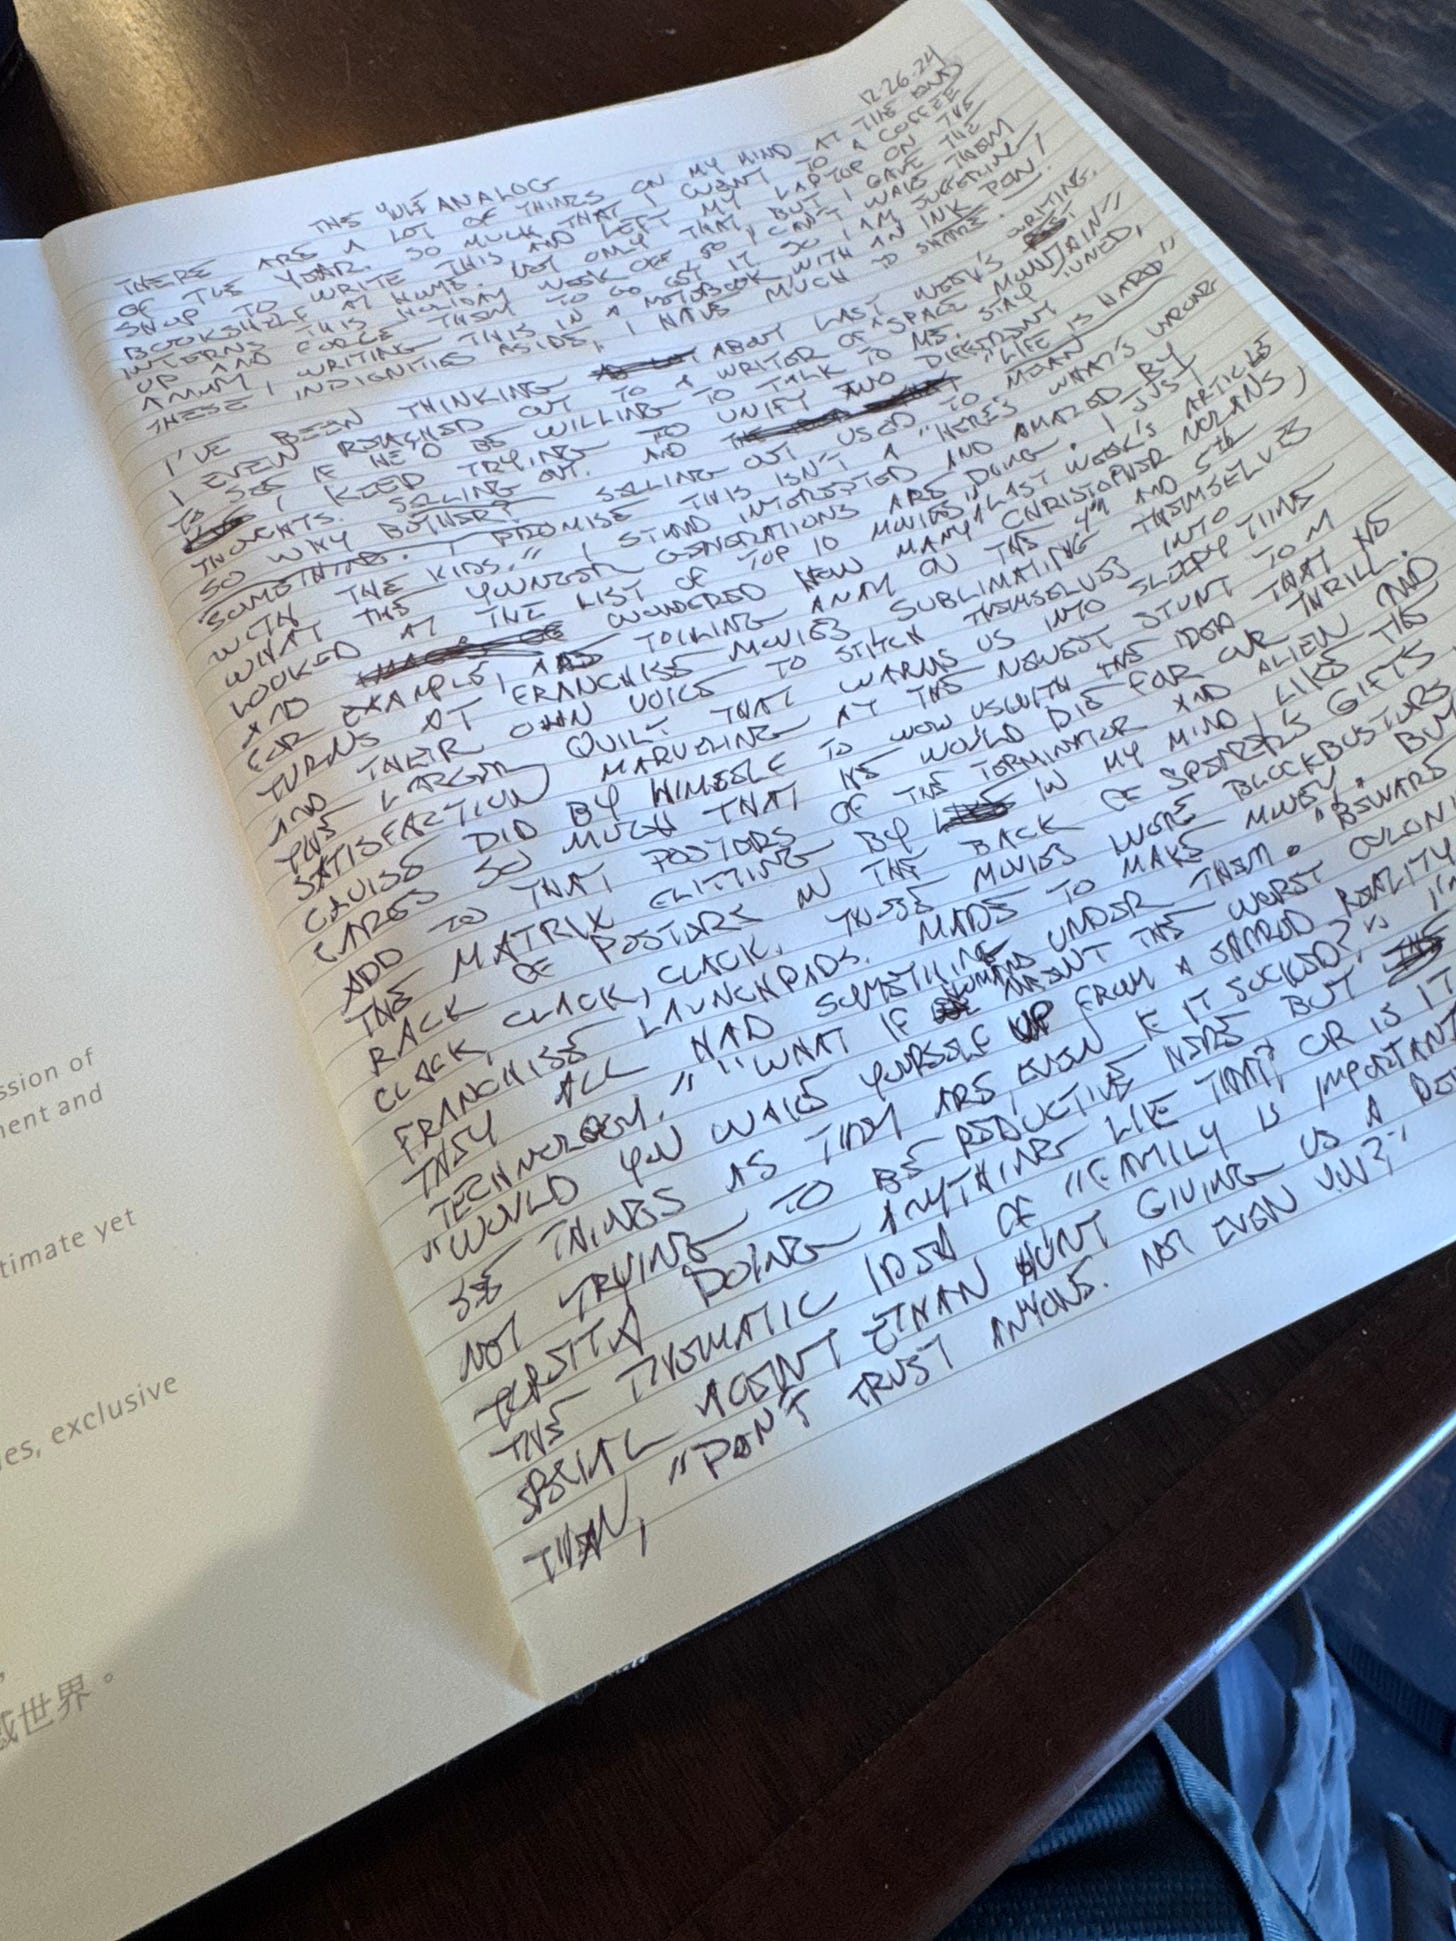 ssion of
ment and
timate yet
es, exclusive
世界。
12.26.24
THE YULE ANALOG
THERE ARE A LOT OF THINGS ON MY MIND AT THE END
OF THE YEAR. SO MUCH THAT I WENT TO A COFFEE
SHOP TO WRITE THIS AND LEFT MY LAPTOP ON THE
BOOKSHELF AT HOME. NOT ONLY THAT, BUT I GAVE THE
INTERNS THIS HOLIDAY WEEK OFF, SO I CAN'T WAKE THEM
UP AND FORCE THEM TO GO GET IT. SO I AM SUFFERING,
AHUM, WRITING THIS IN A NOTEBOOK WITH AN INK PEN!
THESE INDIGNITIES ASIDE, I HAVE MUCH TO SHARE.
I'VE BEEN THINKING ABOUT LAST WEEK'S WRITING.
I EVEN REACHED OUT TO A WRITER OF "SPACE MOUNTAIN"
TO SEE IF HE'D BE WILLING TO TALK TO ME. STAY TUNED,
I KEEP TRYING TO UNIFY TWO DIFFERENT
THOUGHTS. SELLING OUT. AND "LIFE IS HARD"
SO WHY BOTHER? SELLING OUT USED TO MEAN
SOMETHING. I PROMISE THIS ISN'T A "HERE'S WHAT'S WRONG
WITH THE KIDS." I STAND INTERESTED AND AMAZED BY
WHAT THE YOUNGER GENERATIONS ARE DOING. I JUST
LOOKED AT THE LIST OF TOP 10 MOVIES IN LAST WEEK'S ARTICLES
AND WONDERED HOW MANY CHRISTOPHER NOLANS,
FOR EXAMPLE, ARE TOILING AWAY ON THE 4th AND 5th
TURNS AT FRANCHISE MOVIES SUBLIMATING THEMSELVES
AND THEIR OWN VOICE TO STITCH THEMSELVES INTO
THE LARGER QUILT THAT WARMS US INTO SLEEPY TIME
SATISFACTION, MARVELING AT THE NEWEST STUNT TOM
CRUISE DID BY HIMSELF TO WOW US WITH THE IDEA THAT HE
CARES SO MUCH THAT HE WOULD DIE FOR OUR THRILL.
ADD TO THAT POSTERS OF THE TERMINATOR AND ALIEN AND
THE MATRIX FLITTING BY IN MY MIND, LIKE THE
RACK OF POSTERS IN THE BACK OF SPENCER'S GIFTS,
CLACK, CLACK, CLACK. THOSE MOVIES WERE BLOCKBUSTERS,
FRANCHISE LAUNCHPADS. MADE TO MAKE MONEY. BUT
THEY ALL HAD SOMETHING UNDER THEM. "BEWARE
TECHNOLOGY." "WHAT IF HUMANS MEANT THE WORST
"WOULD YOU WAKE YOURSELF UP FROM A SHARED REALITY
SEE THINGS AS THEY ARE, EVEN IF IT SUCKED?" I'M
NOT TRYING TO BE REDUCTIVE HERE BUT
DOING ANYTHING LIKE THAT? OR IS IT
THE THEMATIC IDEA OF "FAMILY IS IMPORTANT
SPECIAL AGENT ETHAN HUNT GIVING US A
THAN, "DON'T TRUST ANYONE. NOT EVEN